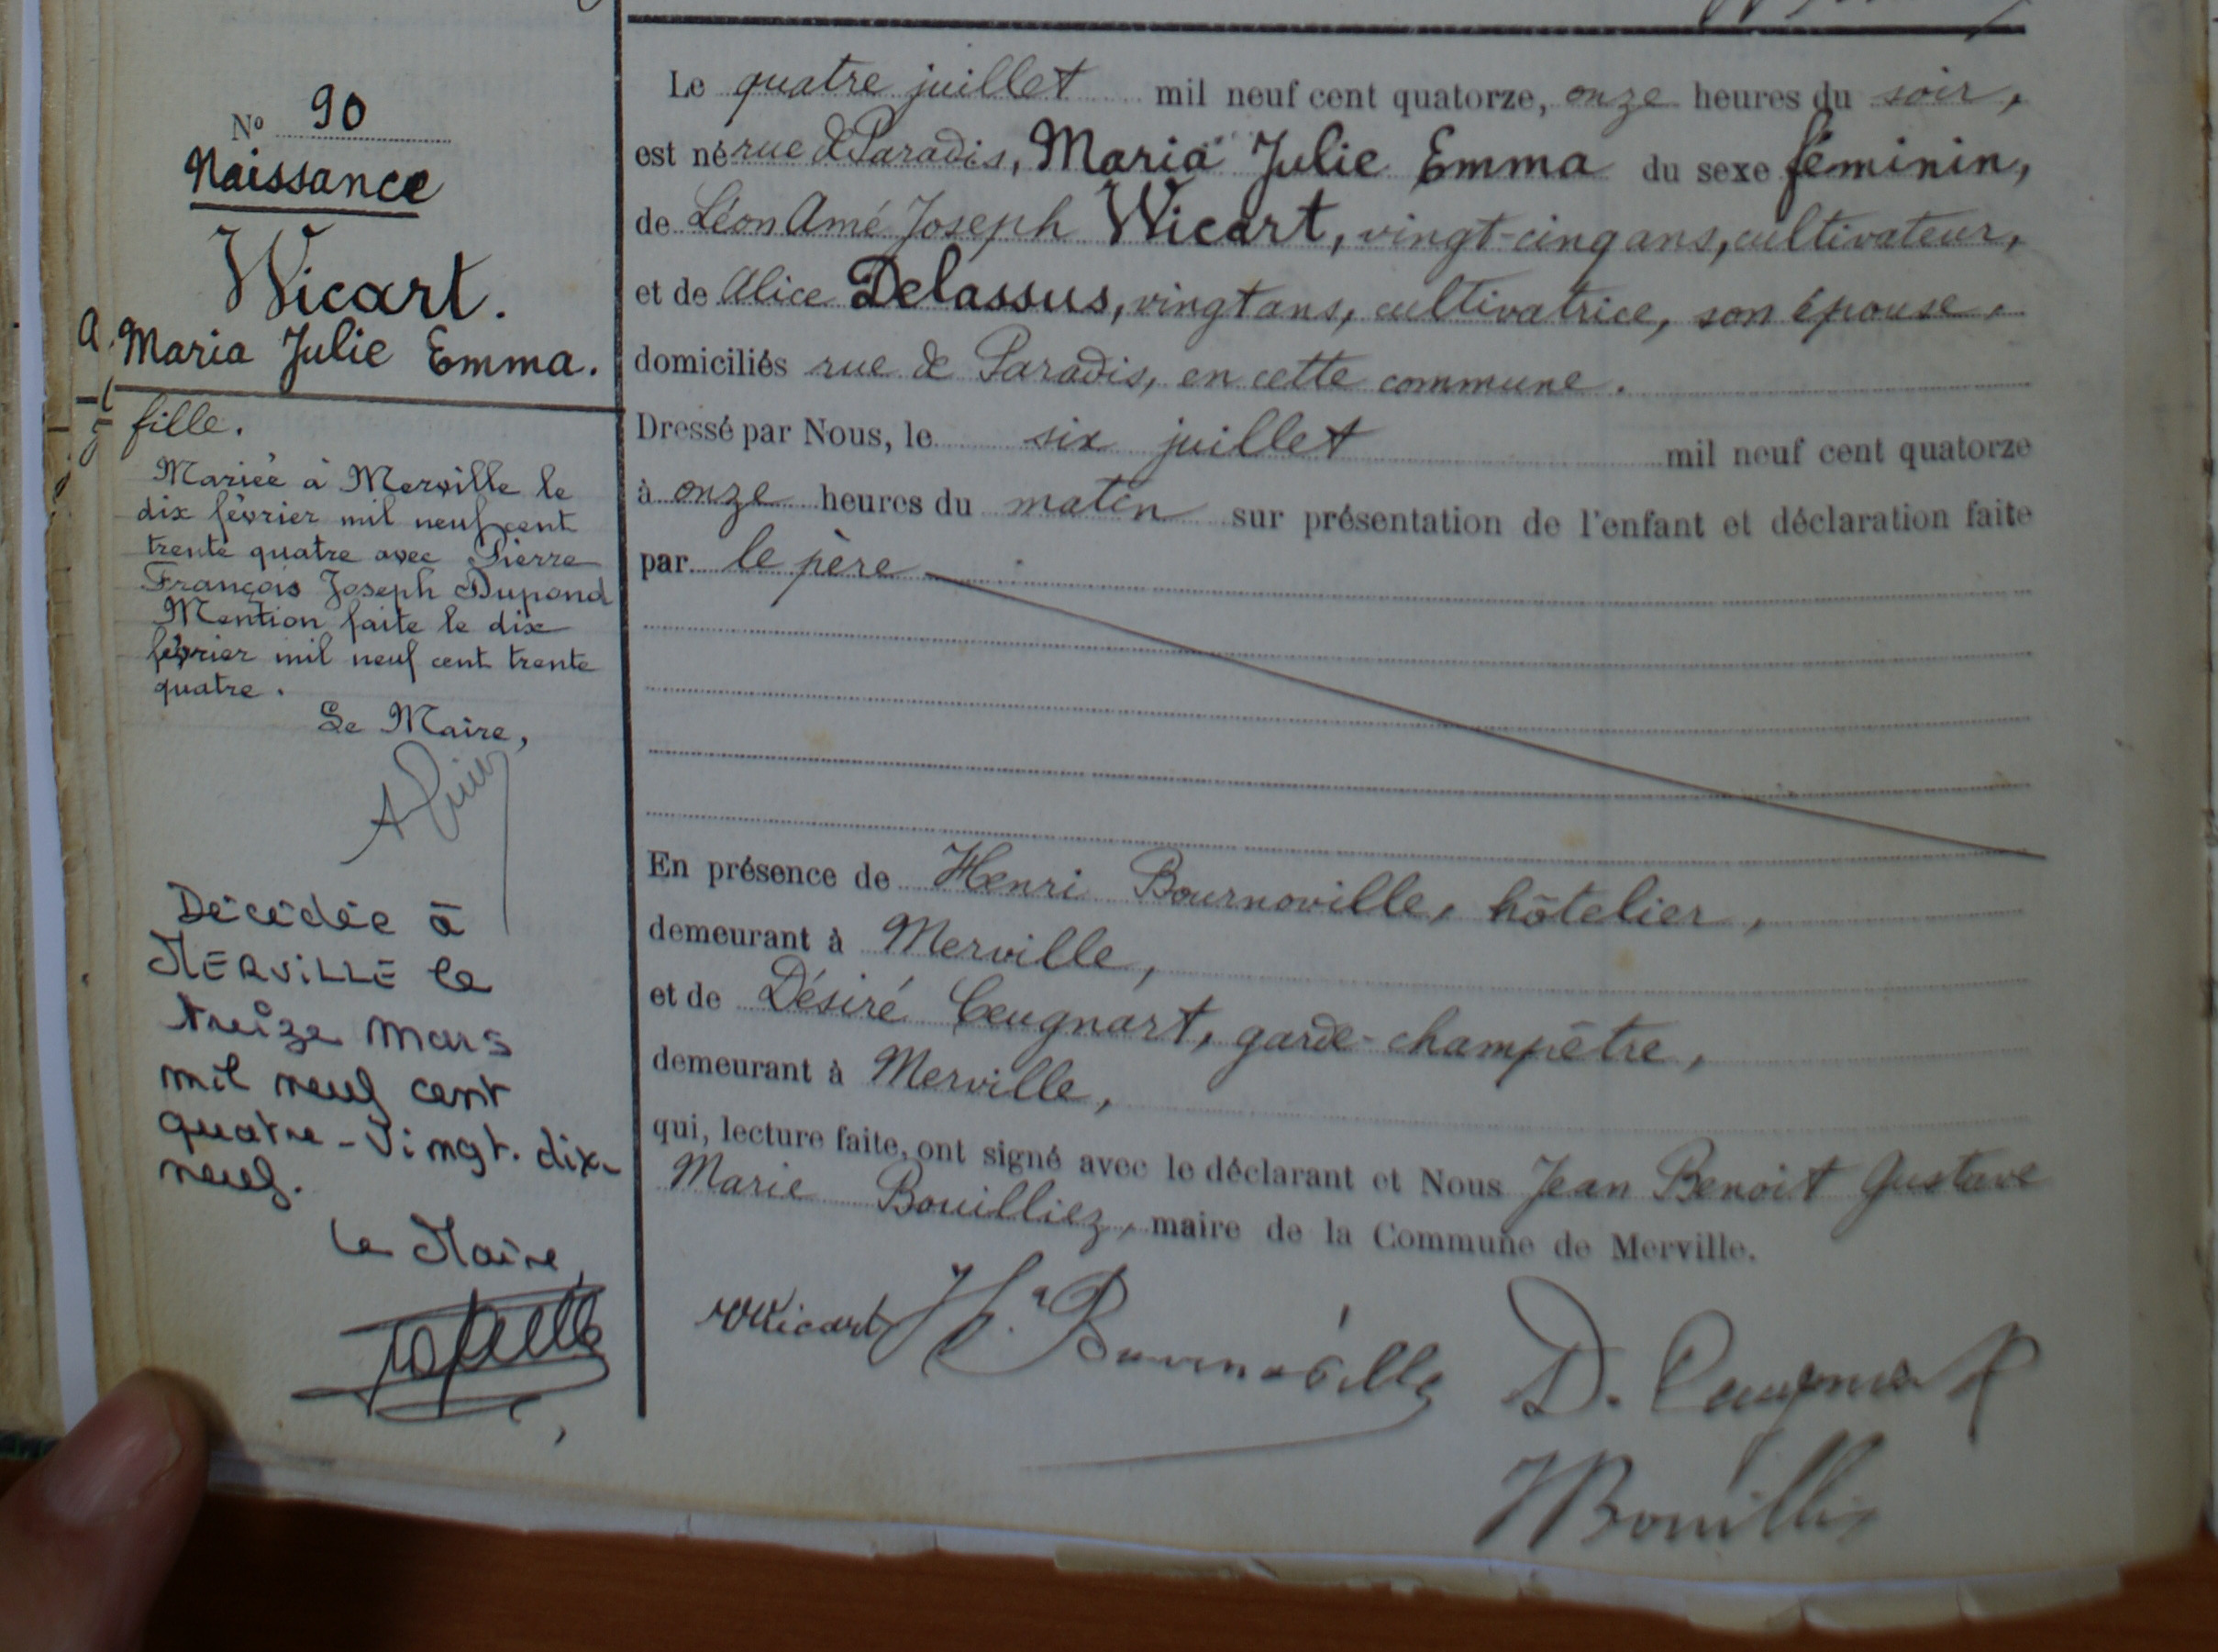 Nº 90
Naissance
Wicart.
Maria Julie Emma.
fille.
Mariée à Merville le
dix février mil neuf cent
trente quatre avec Pierre
François Joseph Dupond
Mention faite le dix
février mil neuf cent trente
quatre.
Le Maire,
Décédée à
MERVILLE le
treize Mars
mil neuf cent
quatre-Vingt. dix-
neuf.
Le Maire,
Le quatre juillet mil neuf cent quatorze, onze heures du soir,
est né rue de Paradis, Maria Julie Emma du sexe féminin,
de Léon Amé Joseph Wicart, vingt-cinq ans, cultivateur,
et de Alice Delassus, vingt ans, cultivatrice, son épouse,
domiciliés rue de Paradis, en cette commune.
Dressé par Nous, le six juillet mil neuf cent quatorze
à onze heures du matin sur présentation de l'enfant et déclaration faite
par le père
En présence de Henri Bournoville, hôtelier,
demeurant à Merville,
et de Désiré Ceugnart, garde-champêtre,
demeurant à Merville,
qui, lecture faite, ont signé avec le déclarant et Nous Jean Benoit Gustave
Marie Bouilliez, maire de la Commune de Merville.
Wicart H. Bournoville D. Ceugnart